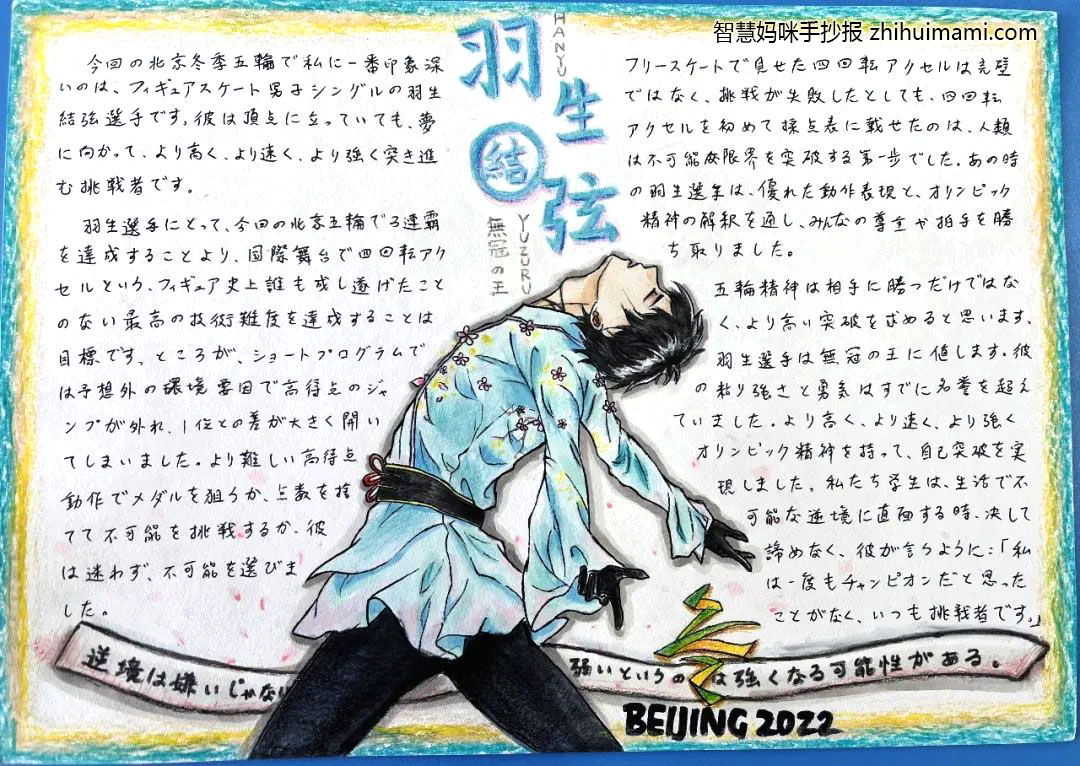 智慧妈咪手抄报 zhihuimami.com
HANYU
羽生結弦
YUZURU
無冠の王
今回の北京冬季五輪で私に一番印象深
いのは、フィギュアスケート男子シングルの羽生
結弦選手です。彼は頂点に立っていても、夢
に向かって、より高く、より速く、より強く突き進
む挑戦者です。
羽生選手にとって、今回の北京五輪で3連覇
を達成することより、国際舞台で四回転アク
セルという、フィギュア史上誰も成し遂げたこと
のない最高の技術難度を達成することは
目標です。ところが、ショートプログラムで
は予想外の環境要因で高得点のジャ
ンプが外れ、1位との差が大きく開い
てしまいました。より難しい高得点
動作でメダルを狙うか、点数を捨
てて不可能を挑戦するか、彼
は迷わず、不可能を選びま
した。
フリースケートで見せた四回転アクセルは完璧
ではなく、挑戦が失敗したとしても、四回転
アクセルを初めて採点表に載せたのは、人類
は不可能な限界を突破する第一歩でした。あの時
の羽生選手は、優れた動作表現と、オリンピック
精神の解釈を通し、みんなの尊重や拍手を勝
ち取りました。
五輪精神は相手に勝つだけではな
く、より高い突破を求めると思います。
羽生選手は無冠の王に値します。彼
の粘り強さと勇気はすでに名誉を超え
ていました。より高く、より速く、より強く
オリンピック精神を持って、自己突破を実
現しました。私たち学生は、生活で不
可能な逆境に直面する時、決して
諦めなく、彼が言うように:「私
は一度もチャンピオンだと思った
ことがなく、いつも挑戦者です。」
逆境は嫌いじゃない
弱いというのは強くなる可能性がある。
BEIJING 2022